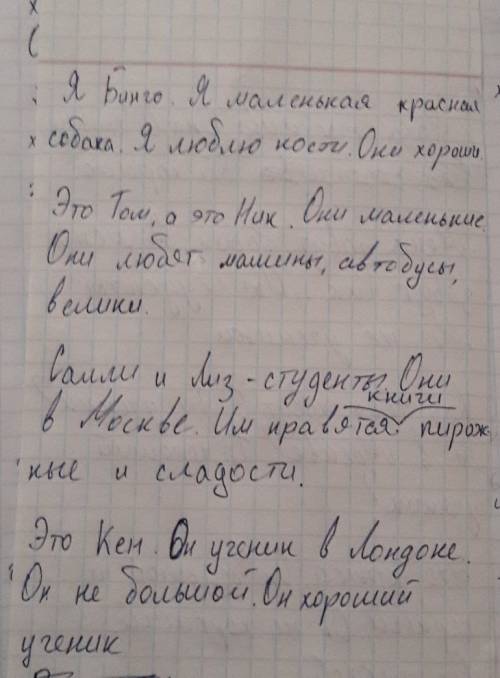 Я Бинго. Я маленькая красная
собака. Я люблю кости. Они хороши.
Это Том, а это Ник. Они маленькие.
Они любят машины, автобусы,
велики.
Салли и Лиз - студенты. Они
в Москве. Им нравятся книги пирож
ные и сладости.
Это Кен. Он ученик в Лондоне.
Он не большой. Он хороший
ученик